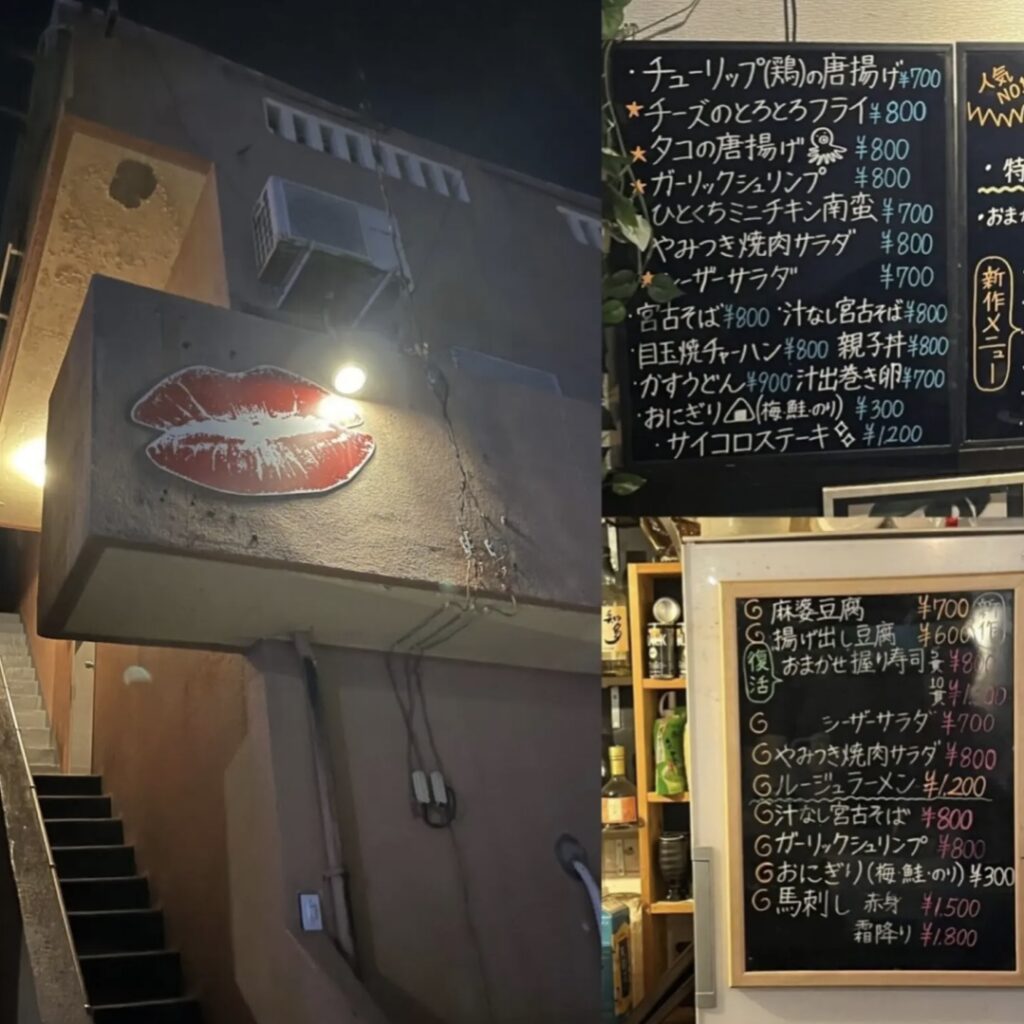 ・チューリップ(鶏)の唐揚げ¥700
★チーズのとろとろフライ¥800
★タコの唐揚げ ¥800
★ガーリックシュリンプ ¥800
ひとくちミニチキン南蛮 ¥700
やみつき焼肉サラダ ¥800
ーザーサラダ ¥700
・宮古そば¥800 ・汁なし宮古そば¥800
・目玉焼チャーハン¥800 親子丼¥800
・かすうどん¥900 汁出巻き卵¥700
・おにぎり(梅・鮭・のり) ¥300
・サイコロステーキ ¥1,200
人気
NO1
・特
・おまか
新作メニュー
知多
麻婆豆腐 ¥700
新作
揚げ出し豆腐 ¥600
復活
おまかせ握り寿司 5貫 ¥800
10貫
シーザーサラダ ¥700
やみつき焼肉サラダ ¥800
ルージュラーメン ¥1,200
汁なし宮古そば ¥800
ガーリックシュリンプ ¥800
おにぎり(梅・鮭・のり) ¥300
馬刺し 赤身 ¥1,500
霜降り ¥1,800